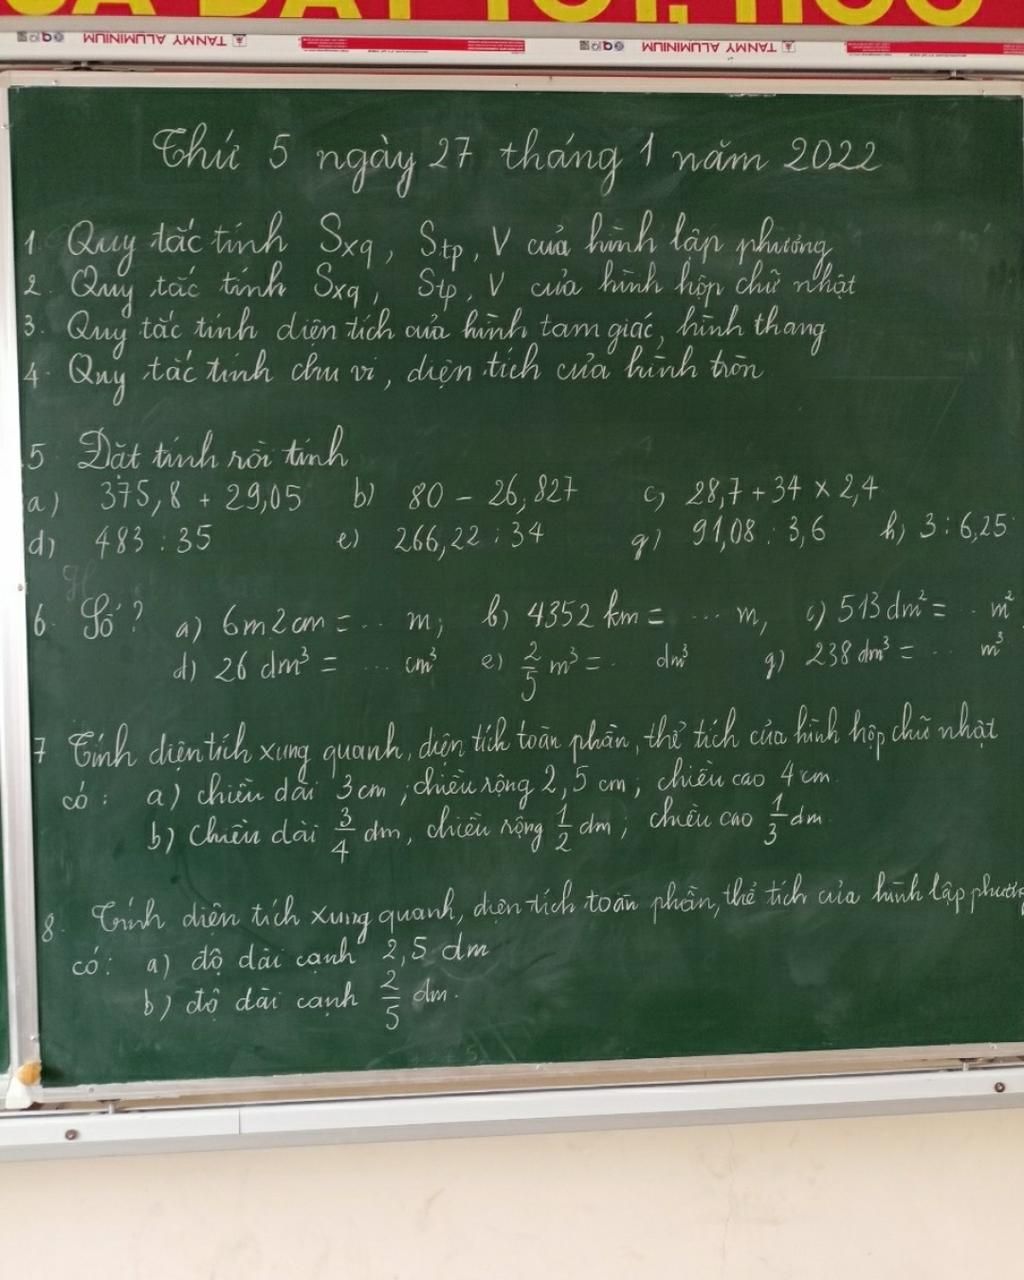 TANMY ALUMINIUM TANMY ALUMINIUM
Thứ 5 ngày 27 tháng 1 năm 2022
1. Quy tắc tính Sxq, Stp, V của hình lập phương
2. Quy tắc tính Sxq, Stp, V của hình hộp chữ nhật
3. Quy tắc tính diện tích của hình tam giác, hình thang
4. Quy tắc tính chu vi, diện tích của hình tròn
5 Đặt tính rồi tính
a) 375,8 + 29,05 b) 80 - 26,827 c) 28,7 + 34 × 2,4
d) 483 : 35 e) 266,22 : 34 g) 91,08 : 3,6 h) 3 : 6,25
6. Số? a) 6m2cm = ... m; b) 4352 km = ... m, c) 513 dm² = ... m²
d) 26 dm³ = ... cm³ e) 2/5 m³ = ... dm³ g) 238 dm³ = ... m³
7 Tính diện tích xung quanh, diện tích toàn phần, thể tích của hình hộp chữ nhật
có: a) chiều dài 3cm; chiều rộng 2,5 cm; chiều cao 4 cm.
b) Chiều dài 3/4 dm, chiều rộng 1/2 dm; chiều cao 1/3 dm
8. Tính diện tích xung quanh, diện tích toàn phần, thể tích của hình lập phương
có: a) độ dài cạnh 2,5 dm
b) độ dài cạnh 2/5 dm.